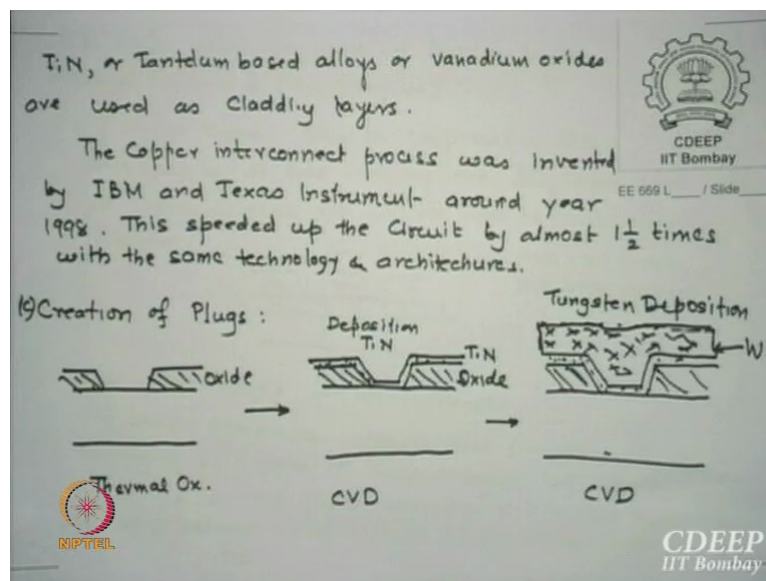 TiN, or Tantalum based alloys or vanadium oxides
are used as Claddig layers.
The Copper interconnect process was invented
by IBM and Texas Instrument around year
1998. This speeded up the Circuit by almost 1 1/2 times
with the same technology & architechures.
CDEEP
IIT Bombay
EE 669 L____ / Slide____
(c) Creation of Plugs :
Oxide
Thermal Ox.
Deposition
TiN
TiN
Oxide
CVD
Tungsten Deposition
W
CVD
NPTEL
CDEEP
IIT Bombay